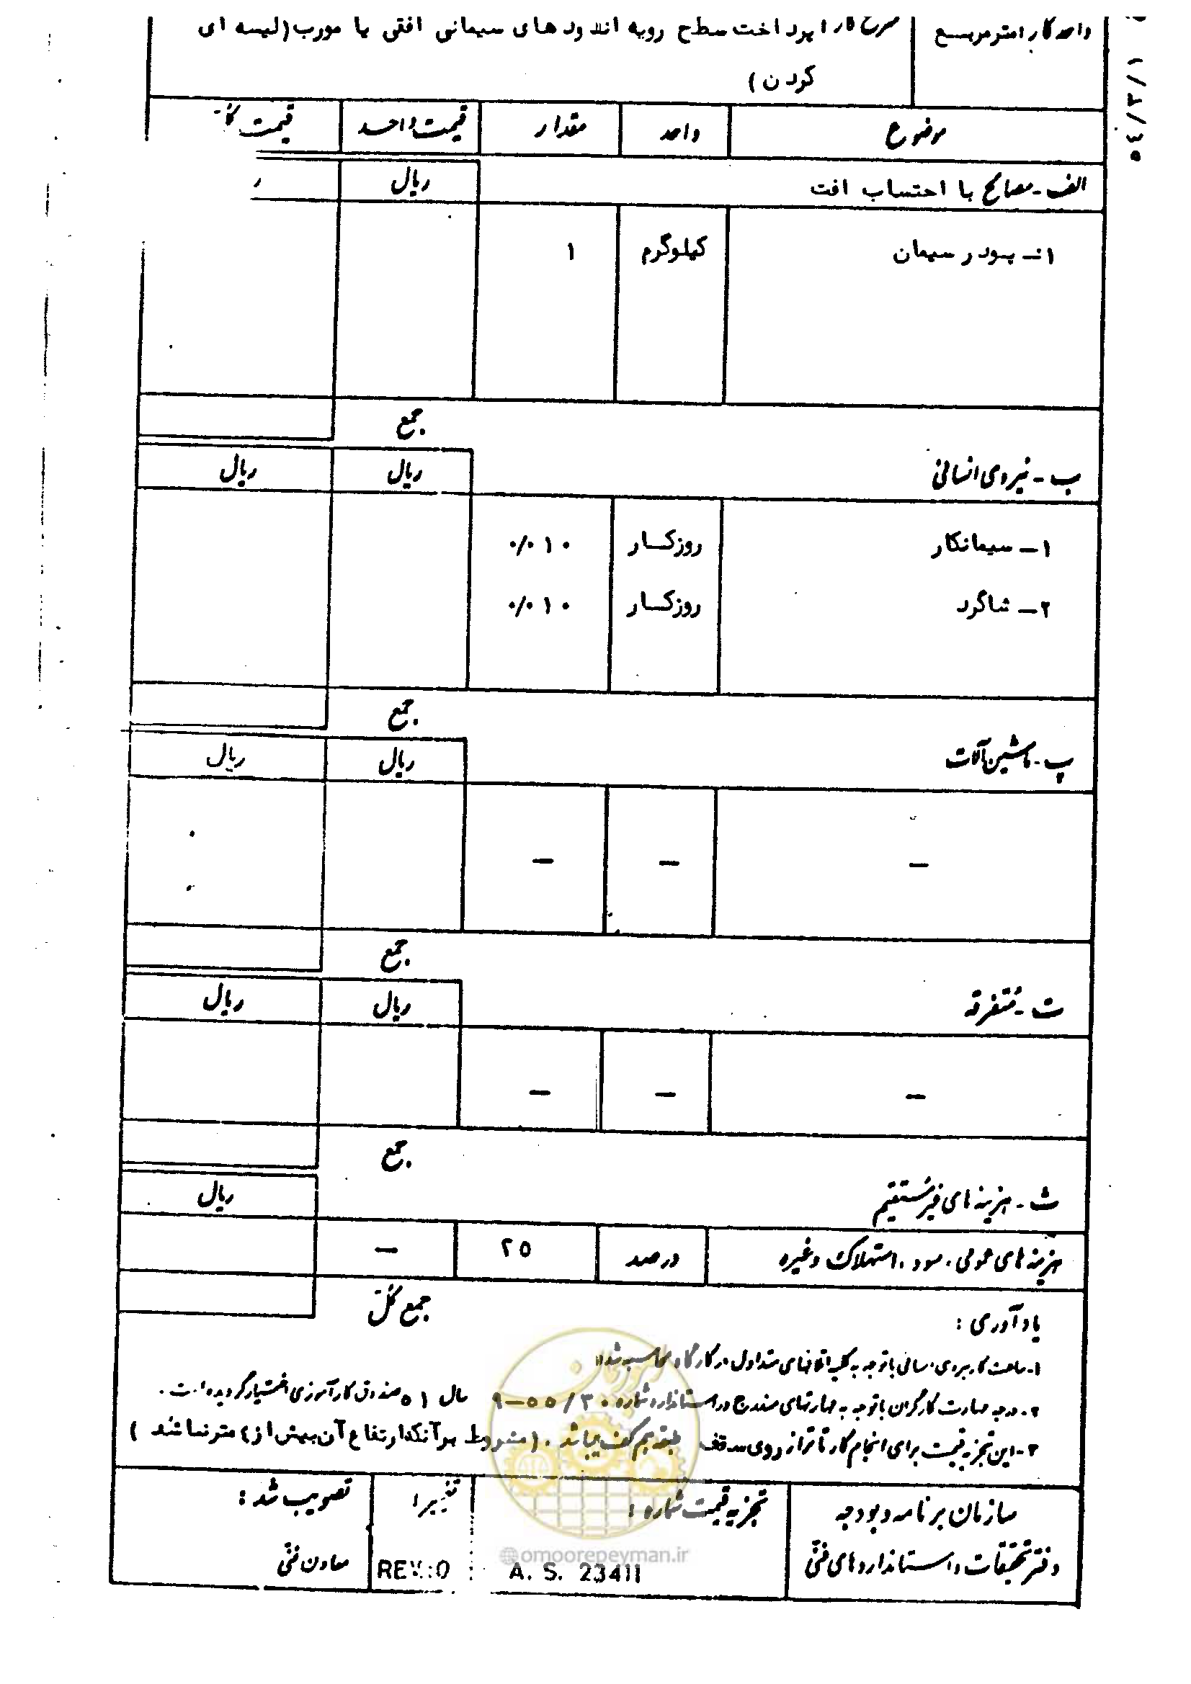 واحد کار : مترمربع
شرح کار : پرداخت سطح رویه اندودهای سیمانی افقی یا مورب (لیسه ای
کردن )
۵۴/۳/۱
موضوع واحد مقدار قیمت واحد قیمت کل
الف - مصالح با احتساب افت ریال
۱ـ پودر سیمان کیلوگرم ۱
جمع
ب - نیروی انسانی ریال ریال
۱ـ سیمانکار روزکار ۰/۰۱۰
۲ـ شاگرد روزکار ۰/۰۱۰
جمع
پ - ماشین آلات ریال ریال
— — —
جمع
ت - متفرقه ریال ریال
— — —
جمع
ث - هزینه های غیرمستقیم ریال
هزینه های عمومی ، سود ، استهلاک وغیره درصد ۲۵ —
جمع کل
یادآوری :
۱- ساعت کار نیروی انسانی باتوجه به کلیه اتلافهای متداول در کارگاه محاسبه شده
۲- درجه مهارت کارگران باتوجه به مهارتهای مندرج در استاندارد شماره ۳۰/۵۵–۹ سال ۵۱ صندوق کارآموزی اختیار گردیده است .
۳- این تجزیه قیمت برای انجام کار تا تراز روی سقف طبقه هم کف میباشد . (مشروط برآنکه ارتفاع آن بیش از ۴ متر نباشد )
سازمان برنامه و بودجه
دفتر تحقیقات و استانداردهای فنی
تجزیه قیمت شماره :
A. S. 23411
تغییر :
REV:0
تصویب شد :
معاون فنی
امور پیمان
@omoorepeyman.ir